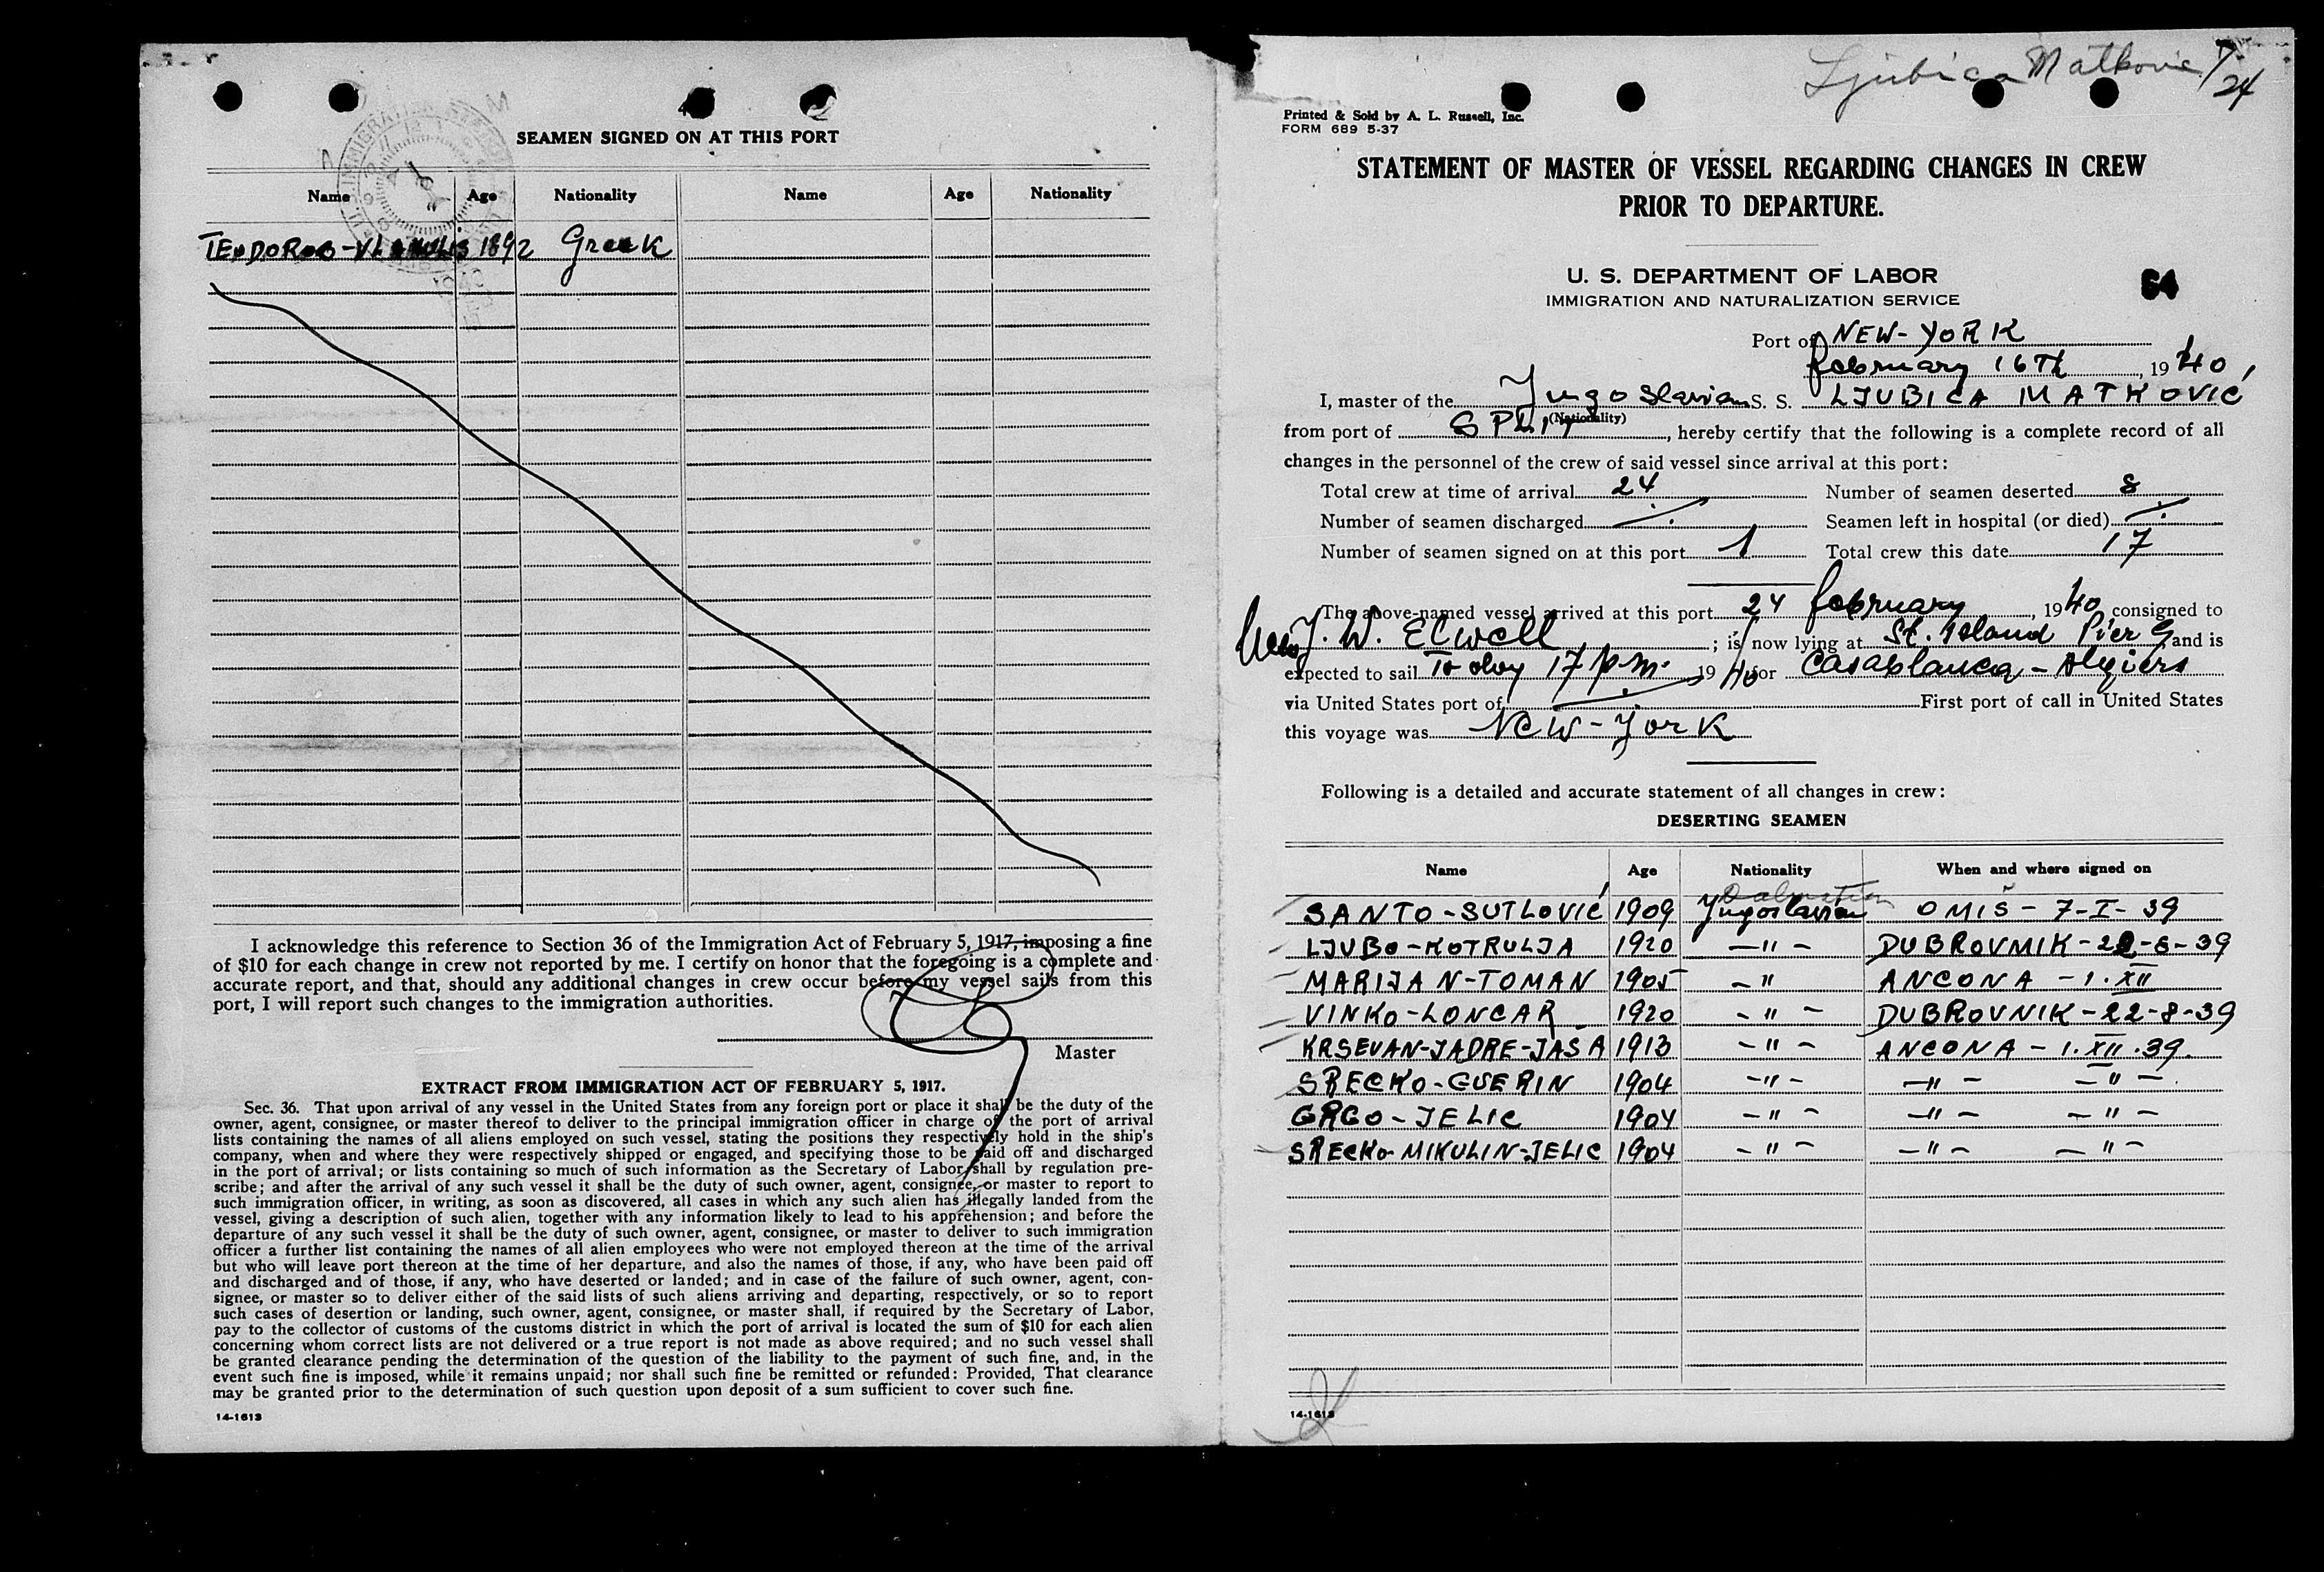 SEAMEN SIGNED ON AT THIS PORT
Name Age Nationality Name Age Nationality
1892 Greek
I acknowledge this reference to Section 36 of the Immigration Act of February 5, 1917, imposing a fine
of $10 for each change in crew not reported by me. I certify on honor that the foregoing is a complete and
accurate report, and that, should any additional changes in crew occur before my vessel sails from this
port, I will report such changes to the immigration authorities.
Master
EXTRACT FROM IMMIGRATION ACT OF FEBRUARY 5, 1917.
Sec. 36. That upon arrival of any vessel in the United States from any foreign port or place it shall be the duty of the
owner, agent, consignee, or master thereof to deliver to the principal immigration officer in charge of the port of arrival
lists containing the names of all aliens employed on such vessel, stating the positions they respectively hold in the ship's
company, when and where they were respectively shipped or engaged, and specifying those to be paid off and discharged
in the port of arrival; or lists containing so much of such information as the Secretary of Labor shall by regulation pre-
scribe; and after the arrival of any such vessel it shall be the duty of such owner, agent, consignee, or master to report to
such immigration officer, in writing, as soon as discovered, all cases in which any such alien has illegally landed from the
vessel, giving a description of such alien, together with any information likely to lead to his apprehension; and before the
departure of any such vessel it shall be the duty of such owner, agent, consignee, or master to deliver to such immigration
officer a further list containing the names of all alien employees who were not employed thereon at the time of the arrival
but who will leave port thereon at the time of her departure, and also the names of those, if any, who have been paid off
and discharged and of those, if any, who have deserted or landed; and in case of the failure of such owner, agent, con-
signee, or master so to deliver either of the said lists of such aliens arriving and departing, respectively, or so to report
such cases of desertion or landing, such owner, agent, consignee, or master shall, if required by the Secretary of Labor,
pay to the collector of customs of the customs district in which the port of arrival is located the sum of $10 for each alien
concerning whom correct lists are not delivered or a true report is not made as above required; and no such vessel shall
be granted clearance pending the determination of the question of the liability to the payment of such fine, and, in the
event such fine is imposed, while it remains unpaid; nor shall such fine be remitted or refunded: Provided, That clearance
may be granted prior to the determination of such question upon deposit of a sum sufficient to cover such fine.
14-1613
Ljubica Matkovic 7/24
Printed & Sold by A. L. Russell, Inc.
FORM 689 5-37
STATEMENT OF MASTER OF VESSEL REGARDING CHANGES IN CREW
PRIOR TO DEPARTURE.
U. S. DEPARTMENT OF LABOR
IMMIGRATION AND NATURALIZATION SERVICE
64
Port of NEW-YORK
february 16Th, 1940,
I, master of the Jugoslavian S. S. LJUBICA MATKOVIĆ
(Nationality)
from port of SPLIT, hereby certify that the following is a complete record of all
changes in the personnel of the crew of said vessel since arrival at this port:
Total crew at time of arrival 24 Number of seamen deserted 8
Number of seamen discharged Seamen left in hospital (or died)
Number of seamen signed on at this port 1 Total crew this date 17
The above-named vessel arrived at this port 24 february, 1940 consigned to
J. W. Elwell; is now lying at St. Island Pier 9 and is
expected to sail To day 17 p.m. 1940 for Casablanca - Algiers
via United States port of First port of call in United States
this voyage was New-York
Following is a detailed and accurate statement of all changes in crew:
DESERTING SEAMEN
Name Age Nationality When and where signed on
Dalmatian
SANTO-SUTLOVIĆ 1909 Yugoslavian OMIŠ - 7-I-39
LJUBO-KOTRULJA 1920 -"- DUBROVNIK-22-8-39
MARIJAN-TOMAN 1905 -" ANCONA - 1. XII
VINKO-LONCAR 1920 -"- DUBROVNIK-22-8-39
KRSEVAN-JADRE-JASA 1913 -"- ANCONA - 1. XII .39.
SRECKO-GUERIN 1904 -"- -"- -"-
GRGO-JELIC 1904 -"- -"- -"-
SRECKO-MIKULIN-JELIC 1904 -"- -"- -"-
14-1613